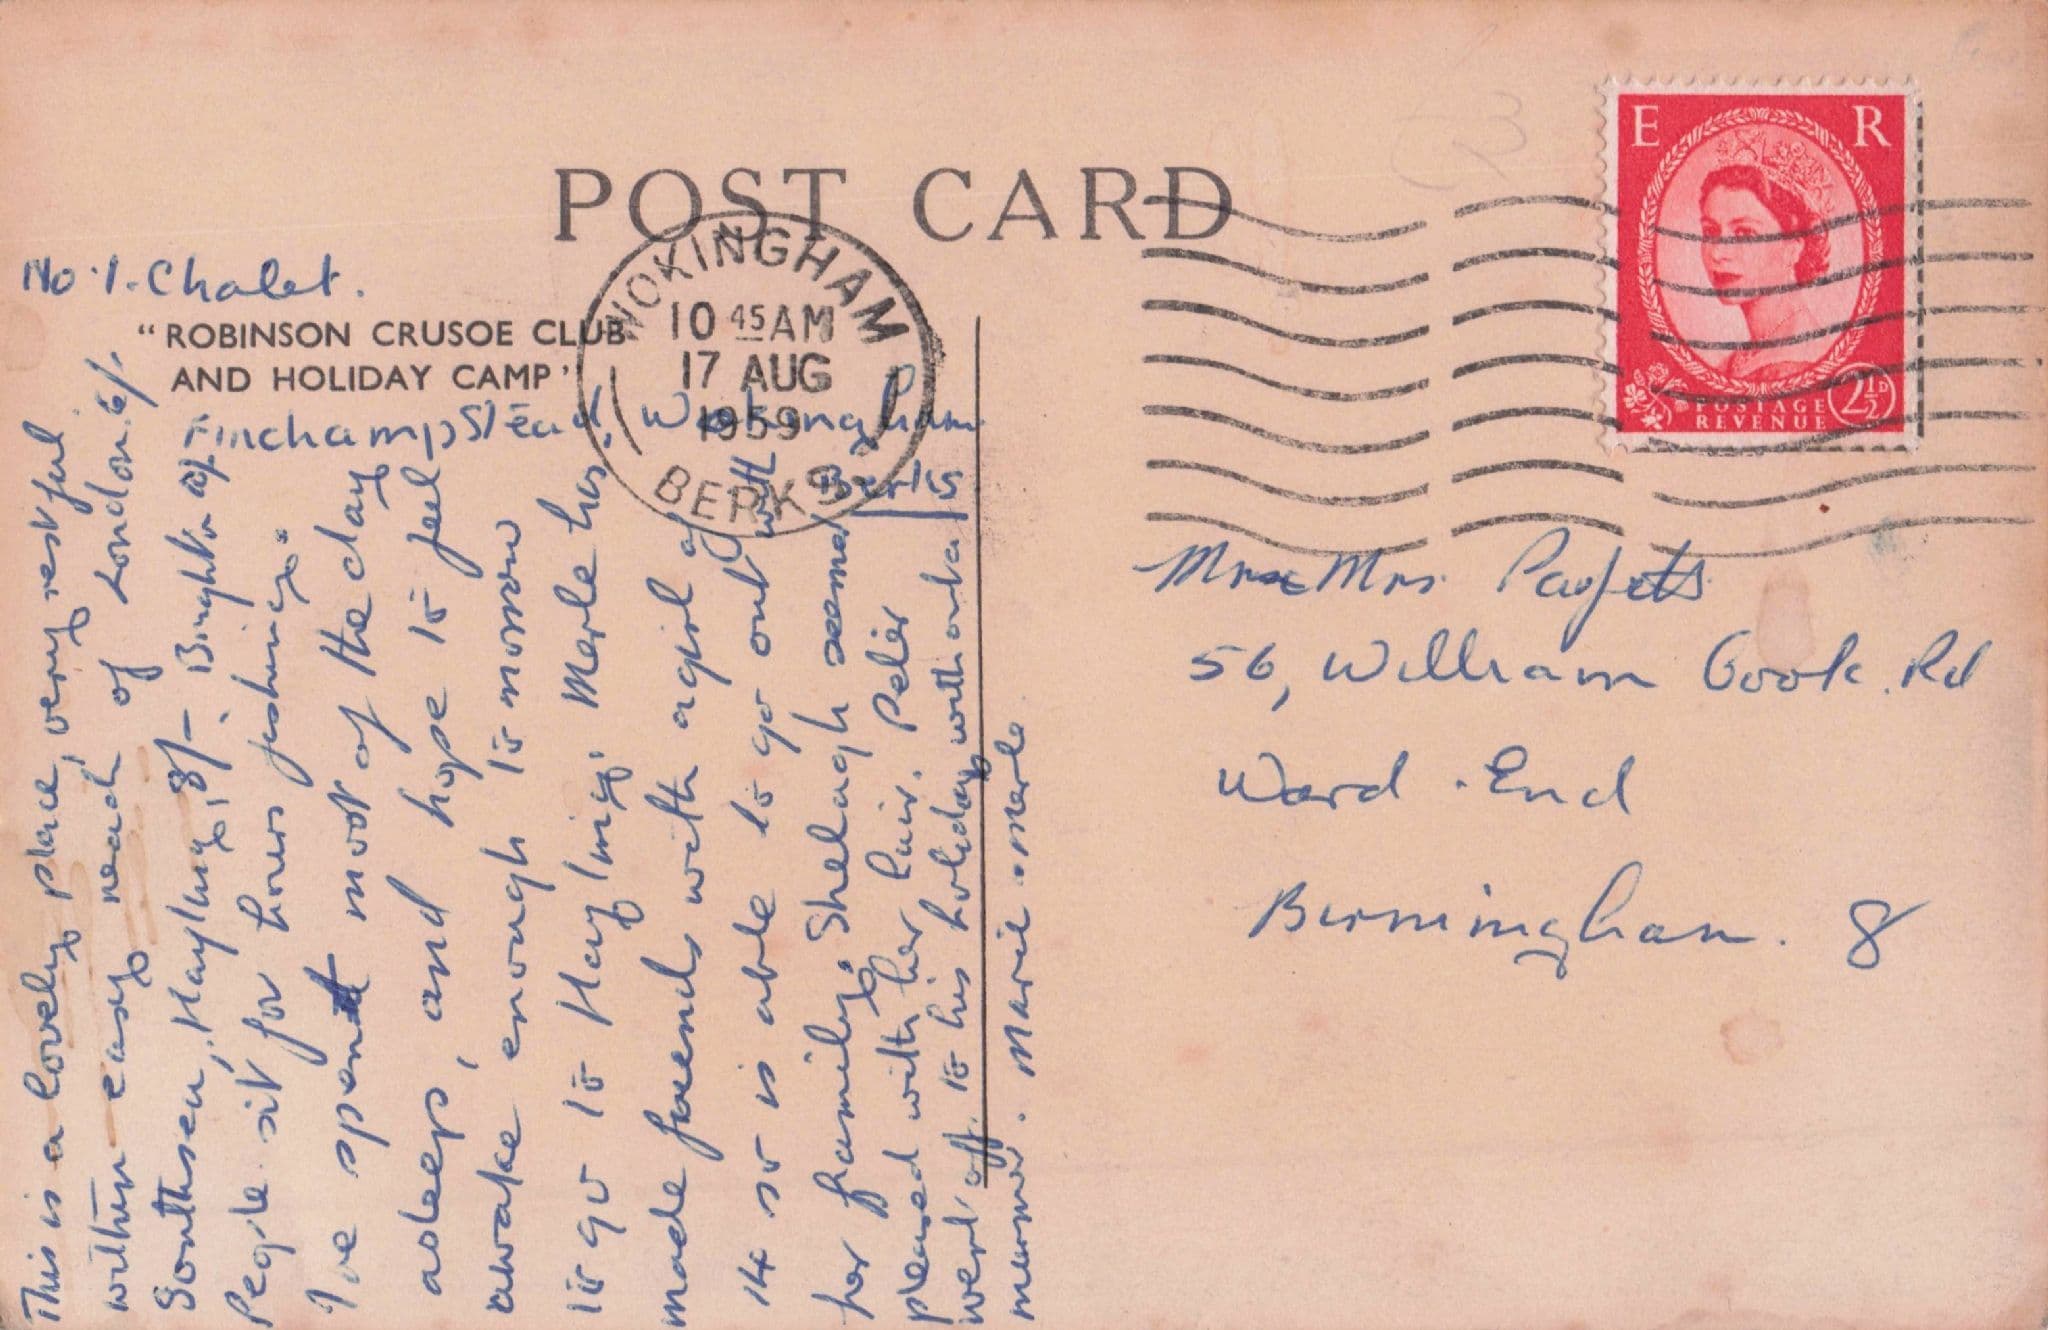 POST CARD
No. 1. Chalet.
"ROBINSON CRUSOE CLUB
AND HOLIDAY CAMP"
Finchampstead. Wokingham
Berks
WOKINGHAM
10 45 AM
17 AUG
1959
BERKS
E R
POSTAGE
REVENUE
2½D
Mr & Mrs. Pagett
56, William Cook. Rd
Ward. End
Birmingham. 8
This is a lovely place, very restful
within easy reach of London. 6/.
Southsea, Hayling, 8/- Brighton 9/.
People sit for hours fishing.
I've spent most of the day
asleep, and hope to feel
awake enough to morrow
to go to Hayling. Merle has
made friends with a girl of
14 so is able to go out with
her family. Sheelagh seemed
pleased with her hair. Peter
went off. to his holiday with
mum. Marie & Merle